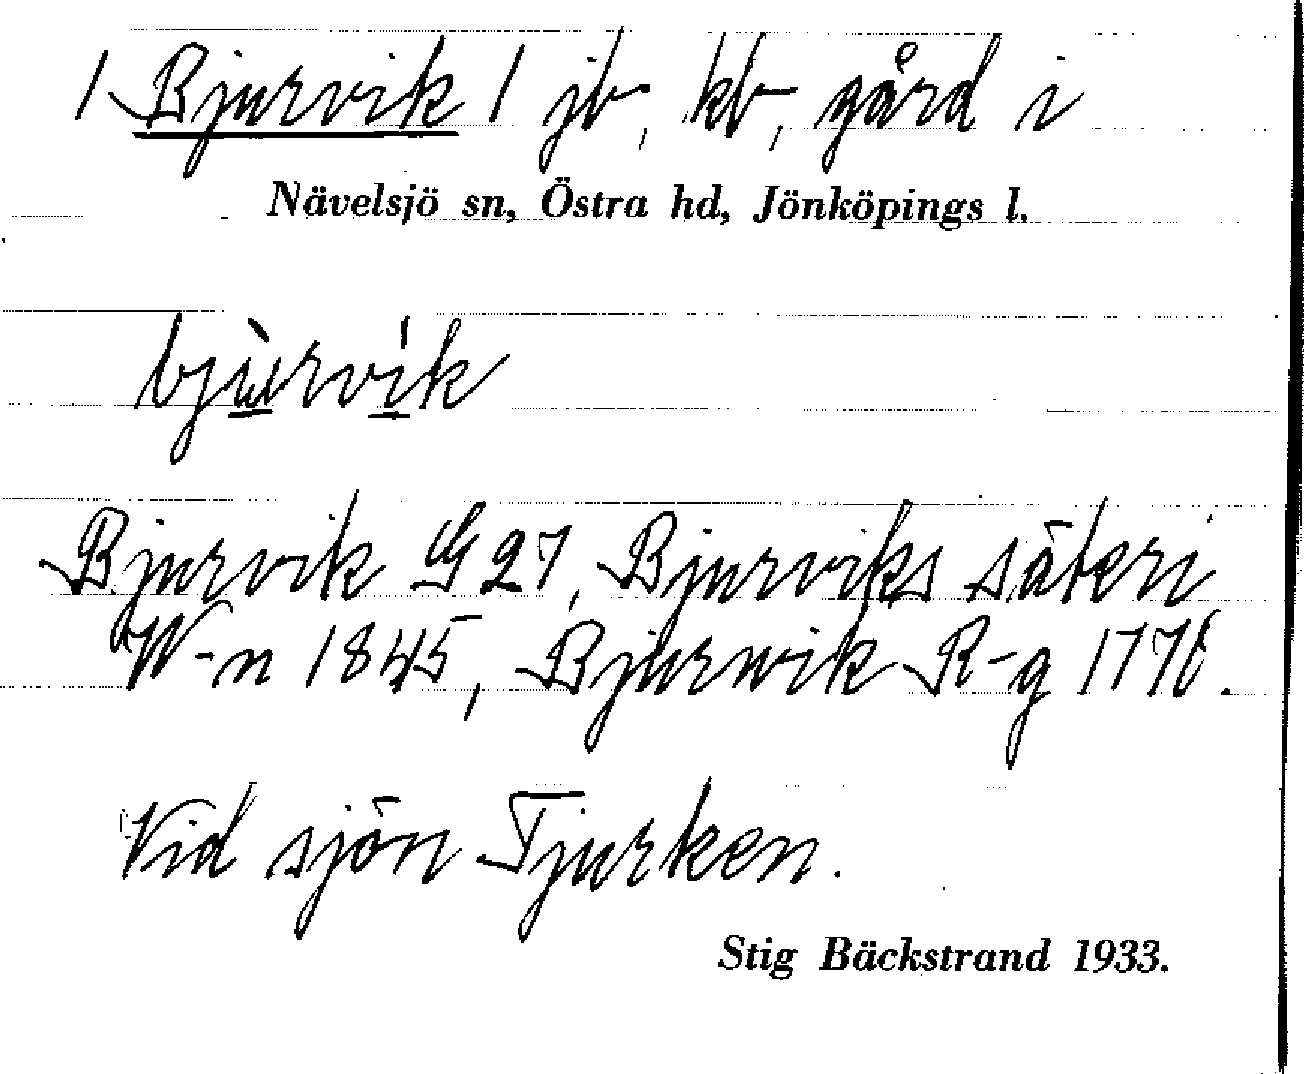 / Bjurvik / jb, kb, gård i
Nävelsjö sn, Östra hd, Jönköpings l.
bjùrvík
Bjurvik G 27, Bjurviks säteri
W-n 1845, Bjurwik R-g 1770.
Vid sjön Tjurken.
Stig Bäckstrand 1933.